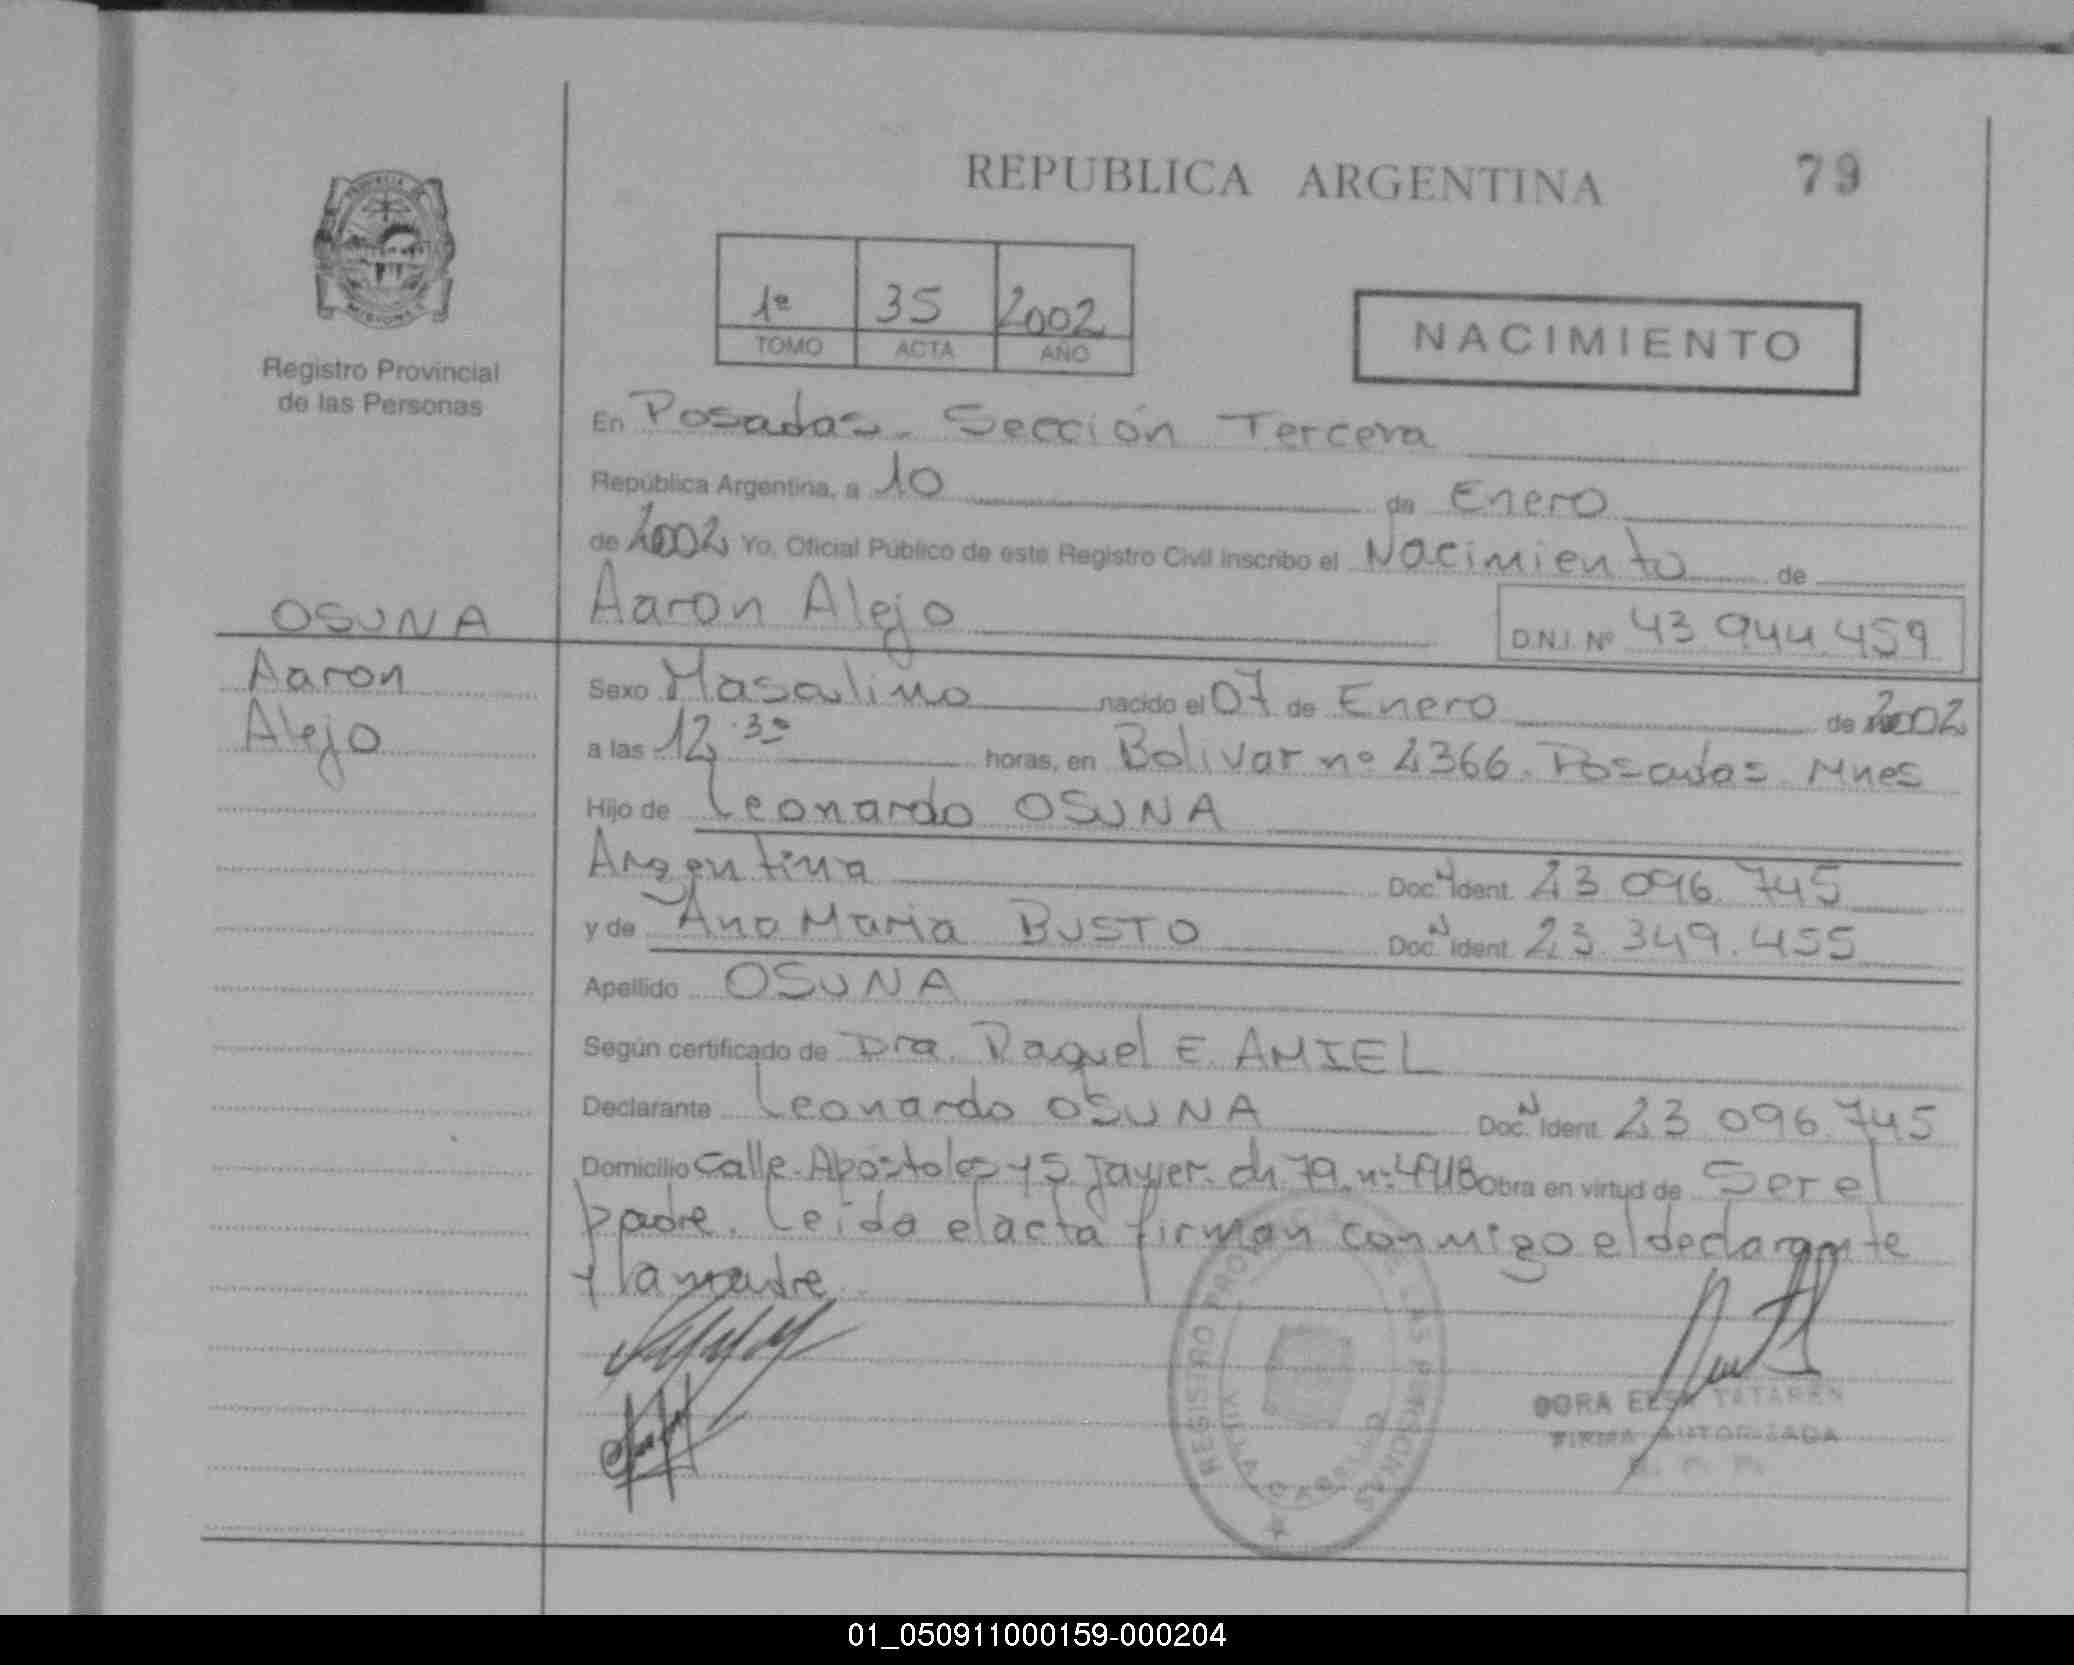 REPUBLICA ARGENTINA
79
Registro Provincial
de las Personas
1º 35 2002
TOMO ACTA AÑO
NACIMIENTO
En Posadas. Sección Tercera
República Argentina, a 10 de Enero
de 2002 Yo, Oficial Público de este Registro Civil inscribo el Nacimiento de
Aaron Alejo D.N.I. Nº 43.944.459
OSUNA
Aaron
Alejo
Sexo Masculino nacido el 07 de Enero de 2002
a las 12.30 horas, en Bolivar nº 2366. Posadas Mnes
Hijo de Leonardo OSUNA
Argentina Doc. N Ident. 23.096.745
y de Ana Maria BUSTO Doc. N Ident. 23.349.455
Apellido OSUNA
Según certificado de Dra. Raquel E. AMIEL
Declarante Leonardo OSUNA Doc. N Ident. 23.096.745
Domicilio Calle Apóstoles y S. Javier. ch 79. nº 4418 Obra en virtud de Ser el
padre. Leida el acta firman conmigo el declarante
y la madre.
REGISTRO PROVINCIAL DE LAS PERSONAS
VILLA CABELLO
DORA ELSA
FIRMA AUTORIZADA
01_050911000159-000204